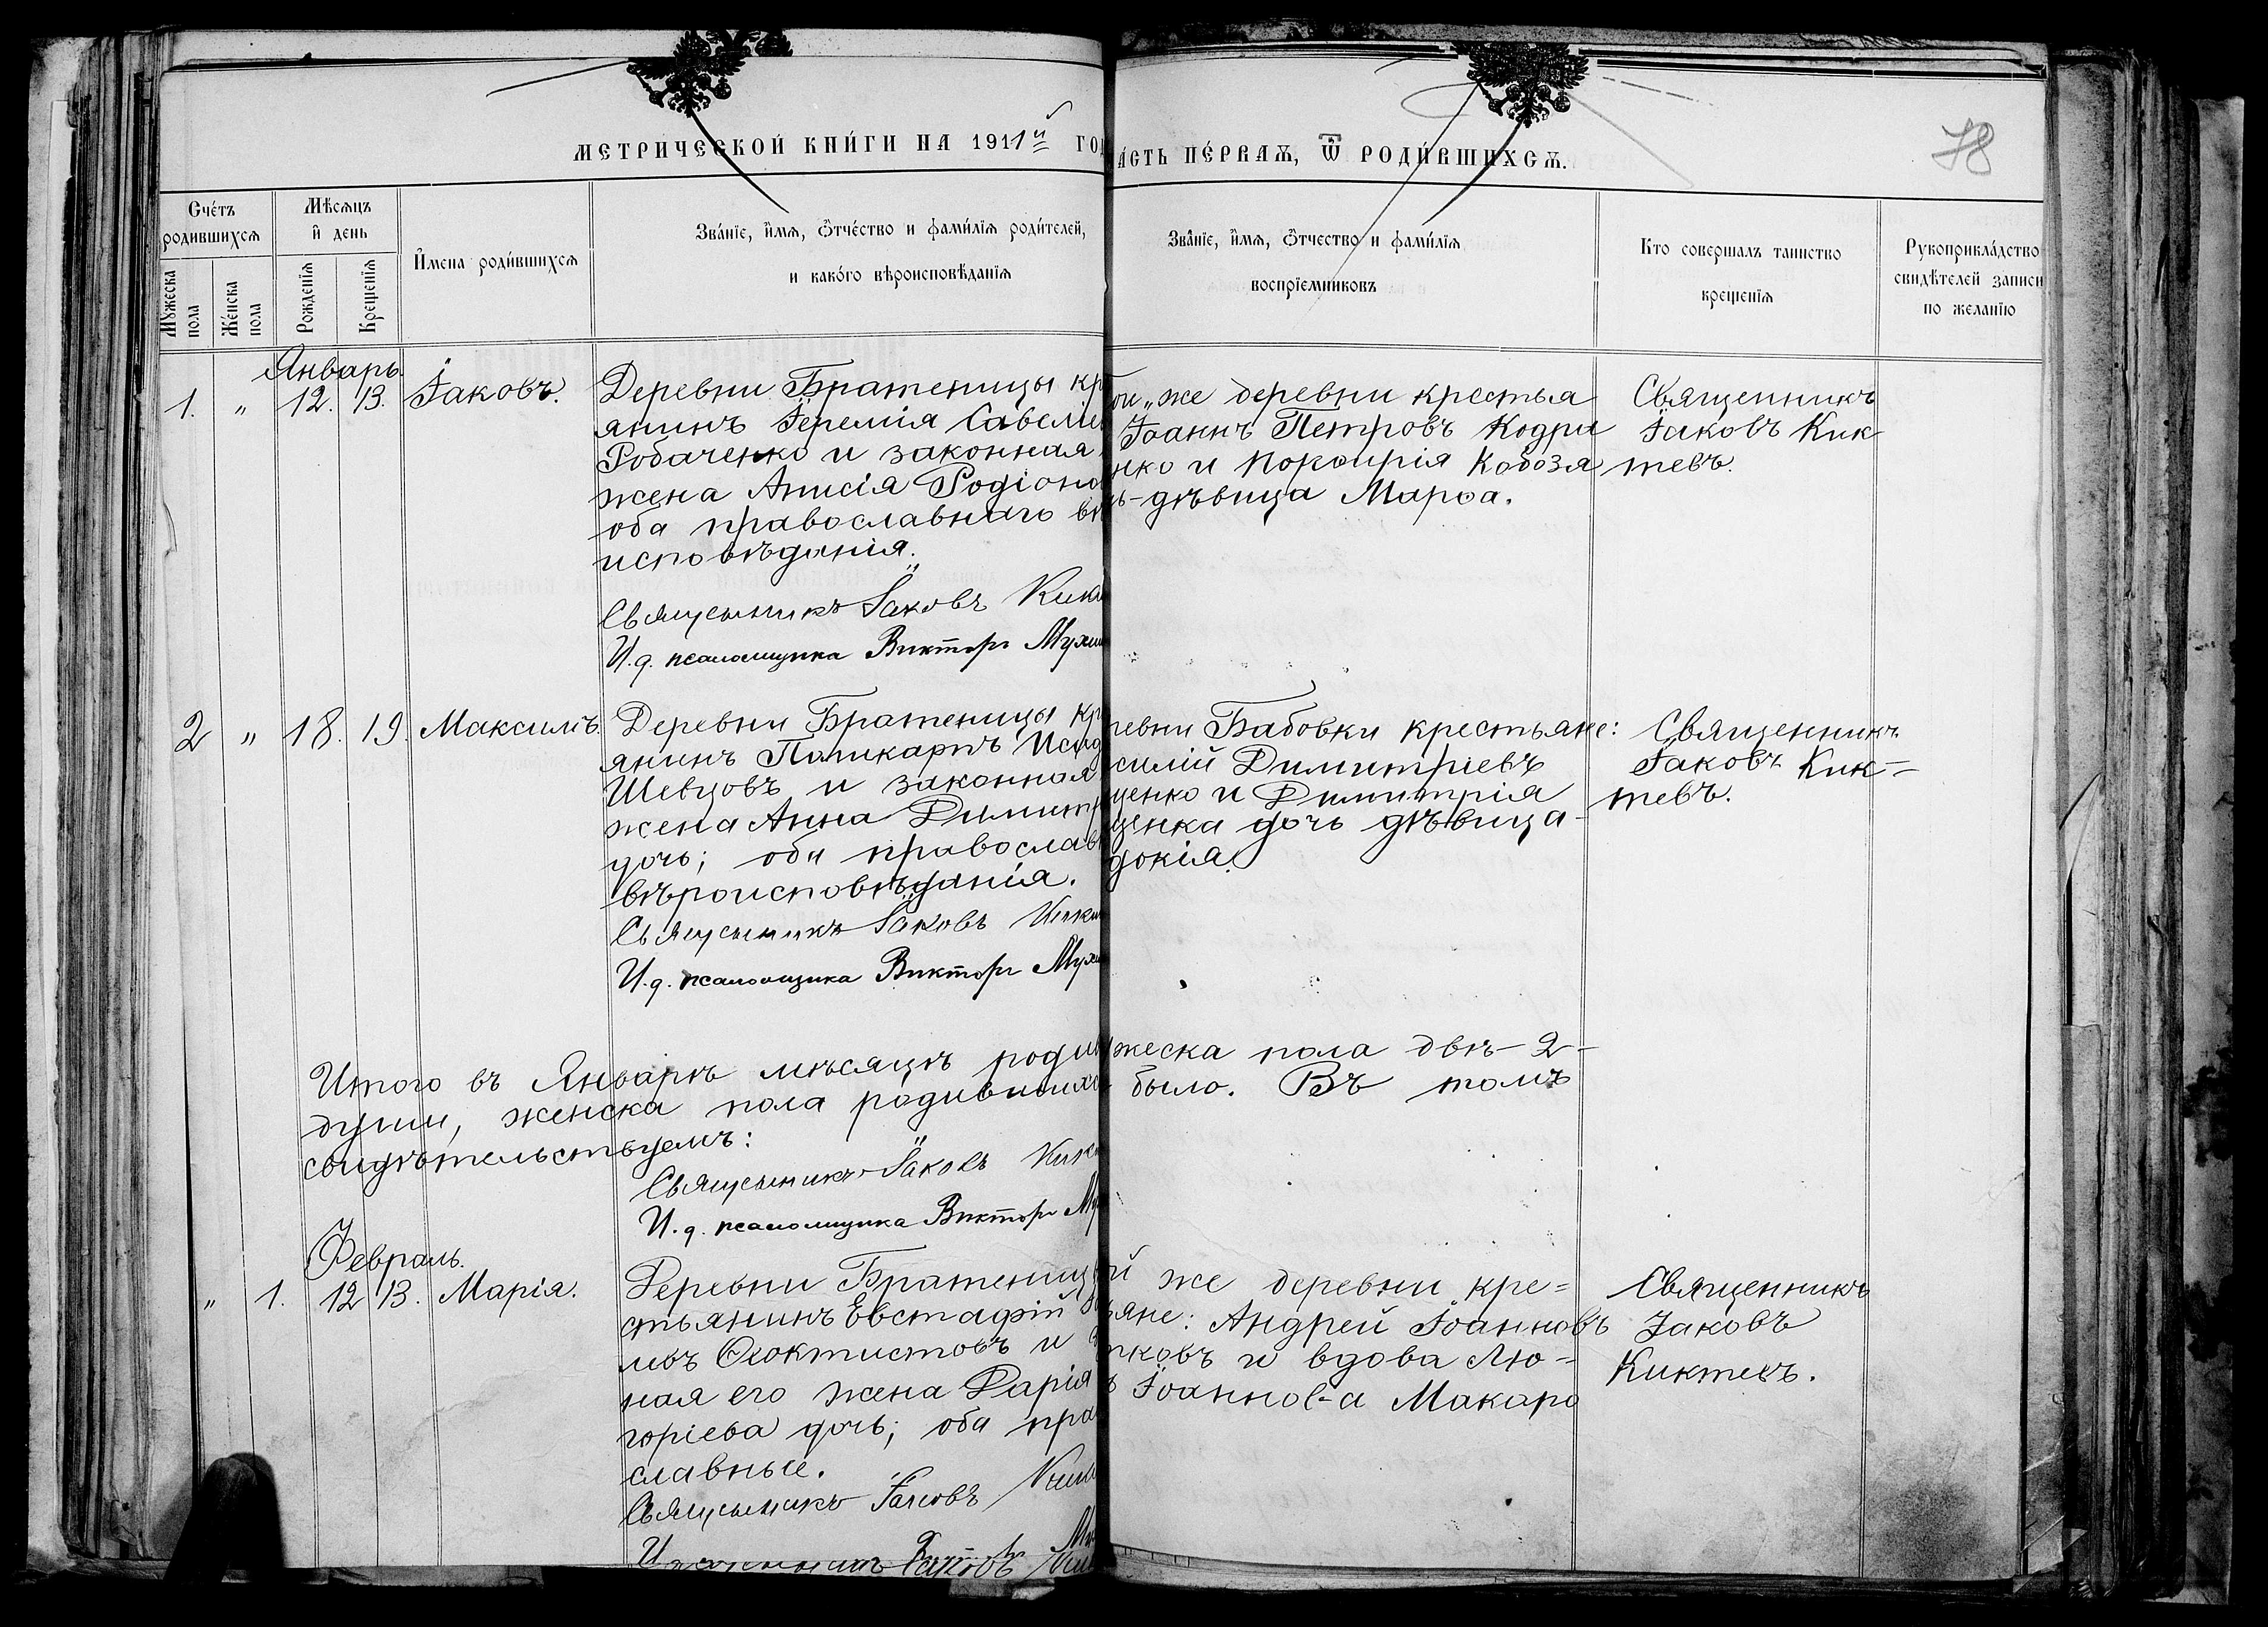 МЕТРИЧЕСКОЙ КНИ́ГИ НА 1911й ГО
А́СТЬ ПЕ́РВАѦ, Ѿ РОДИ́ВШИХСѦ.
78
Сче́тъ родившихсѧ
Мꙋжеска пола
Же́нска пола
Мѣ́сѧцъ и҆ день
Рожденїѧ
Крещенїѧ
И҆мена роди́вшихсѧ
Зва́нїе, и҆́мѧ, ѻ҆тче́ство и фами́лїѧ роди́телей,
и како́го вѣроисповѣ́данїѧ
Зва́нїе, и҆́мѧ, ѻ҆тчество и фами́лїѧ
воспрїе́мниковъ
Кто совершалъ таинство
крещенїѧ
Рукоприкла́дство
свидѣ́телей записи
по желанїю
Январь.
1. " 12. 13. Іаковъ.
Деревни Братеницы кр
янинъ Іеремія Савелье
Робаченко и законная
жена Анисія Родіоно
оба православнаго вѣ
исповѣданія.
Священникъ Іаковъ Кик
И.д. псаломщика Викторъ Мухи
ой же деревни крестья
Іоаннъ Петровъ Кодри
нко и Порфирія Кобозя
ь-дѣвица Марѳа.
Священникъ
Іаковъ Кик
тевъ.
2 " 18. 19. Максимъ.
Деревни Братеницы кр
янинъ Поликарпъ Исид
Шевцовъ и законная
жена Анна Димитр
дочь; оба православ
вѣроисповѣданія.
Священникъ Іаковъ Кик
И.д. псаломщика Викторъ Мухи
ревни Бабовки крестьяне:
силій Димитріевъ
ценко и Димитрія
ценка дочь дѣвица
докія.
Священникъ
Іаковъ Кик-
тевъ.
Итого въ Январѣ мѣсяцѣ роди
жеска пола двѣ-2-
души, женска пола родившихс
было. Въ томъ
свидѣтельствуемъ:
Священникъ Іаковъ Кик
И.д. псаломщика Викторъ Му
Февраль.
" 1. 12 13. Марія.
Деревни Братениц
стьянинъ Евстафій
мовъ Ѳеоктистовъ и
ная его жена Дарія
горіева дочь; оба пра
славные.
Священникъ Іаковъ Кик
й же деревни кре=
яне: Андрей Іоанновъ
ковъ и вдова Лю=
ь Іоаннова Макаро
Священникъ
Іаковъ
Киктевъ.